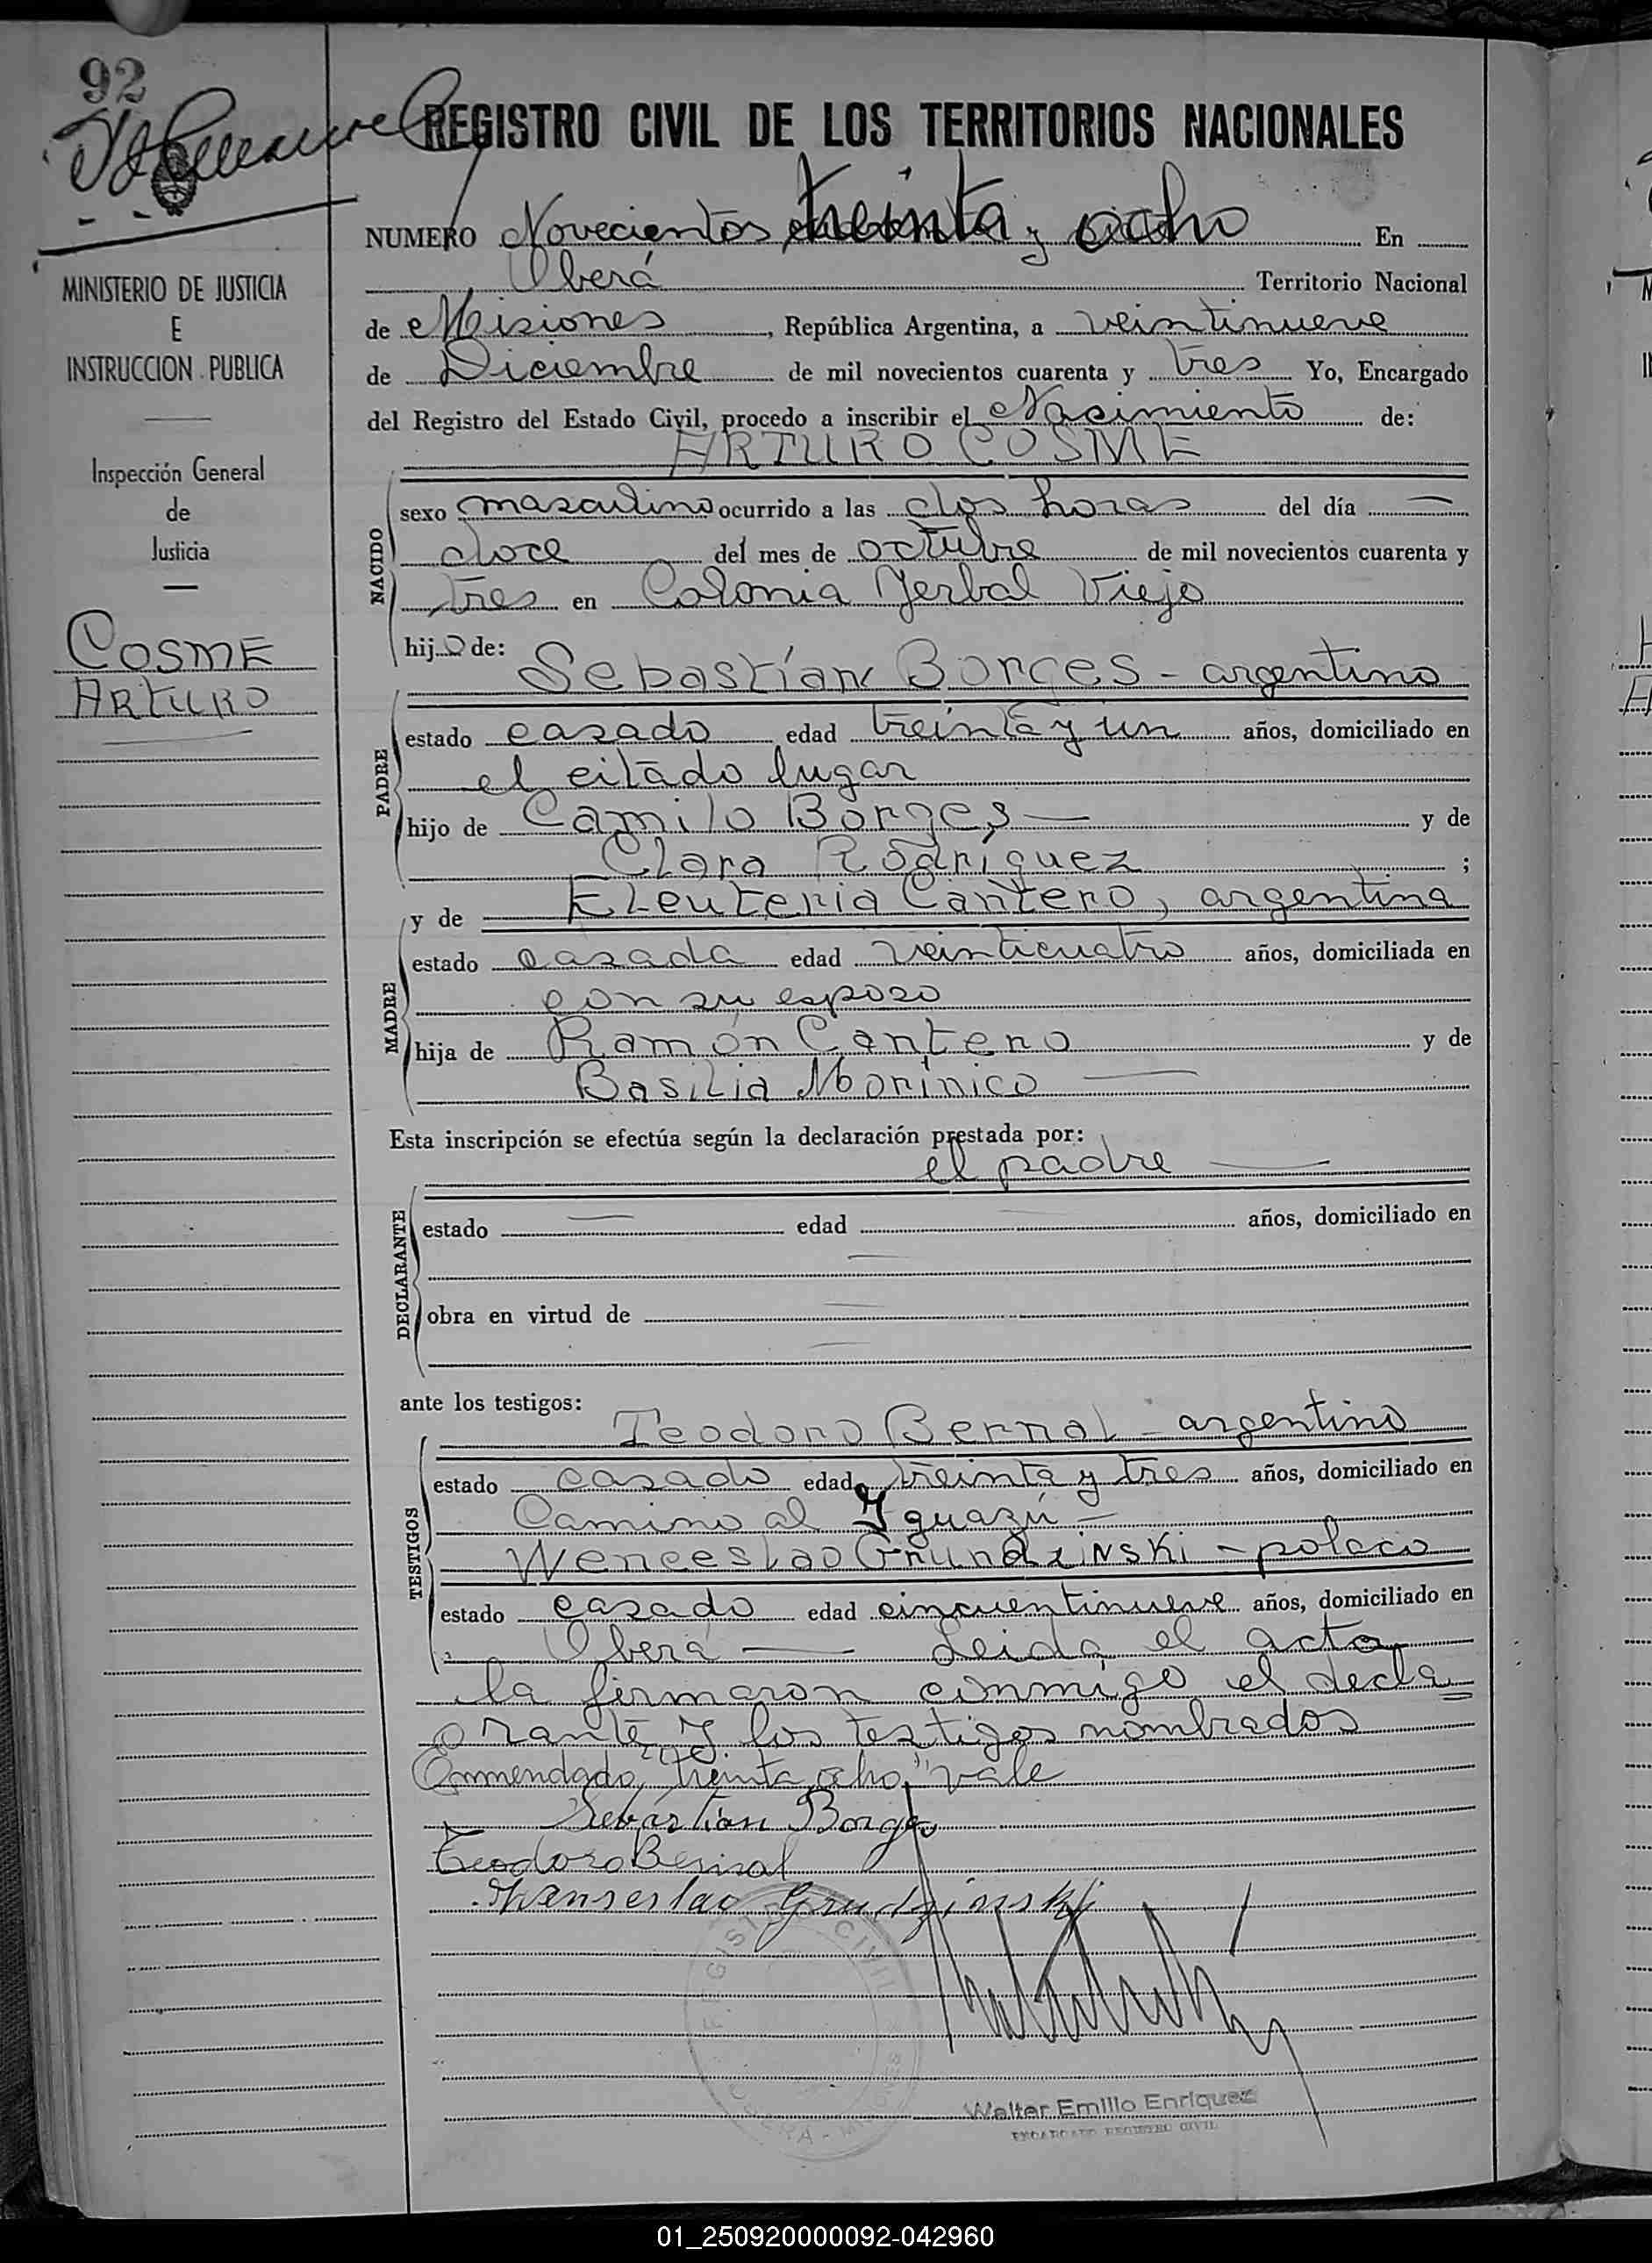 92
REGISTRO CIVIL DE LOS TERRITORIOS NACIONALES
NUMERO Novecientos treinta y ocho En
Oberá Territorio Nacional
de Misiones, República Argentina, a veintinueve
de Diciembre de mil novecientos cuarenta y tres Yo, Encargado
del Registro del Estado Civil, procedo a inscribir el Nacimiento de:
ARTURO COSME
MINISTERIO DE JUSTICIA
E
INSTRUCCION PUBLICA
Inspección General
de
Justicia
COSME
ARTURO
NACIDO
sexo masculino ocurrido a las dos horas del día —
doce del mes de octubre de mil novecientos cuarenta y
tres en Colonia Yerbal Viejo
hijo de:
Sebastían Borges - argentino
PADRE
estado casado edad treinta y un años, domiciliado en
el citado lugar
hijo de Camilo Borges — y de
Clara Rodríguez ;
y de Eleuteria Cantero, argentina
MADRE
estado casada edad veinticuatro años, domiciliada en
con su esposo
hija de Ramón Cantero y de
Basilia Morínico —
Esta inscripción se efectúa según la declaración prestada por:
el padre —
DECLARANTE
estado — edad — años, domiciliado en
—
obra en virtud de —
—
ante los testigos:
Teodoro Bernal - argentino
TESTIGOS
estado casado edad treinta y tres años, domiciliado en
Camino al Yguazú —
Wenceslao Grundzinski - polaco
estado casado edad cincuentinueve años, domiciliado en
Oberá — Leida el acta
la firmaron conmigo el decla=
rante y los testigos nombrados
Enmendado "treinta, ocho," vale
Sebástian Borges
Teodoro Bernal
Wanseslao Grudzinski
REGISTRO CIVIL
Walter Emilio Enriquez
ENCARGADO REGISTRO CIVIL
01_250920000092-042960